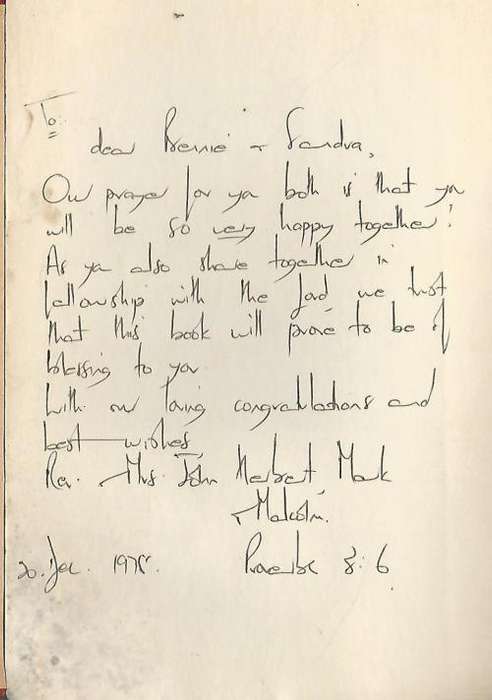 To:
dear Bernie + Sandra,
Our prayer for you both is that you
will be so very happy together!
As you also share together in
fellowship with the Lord we trust
that this book will prove to be of
blessing to you
With our loving congratulations and
best wishes
Rev. Mrs. John Herbert Mark
Malcolm.
20. Dec. 1975. Proverbs 3:6